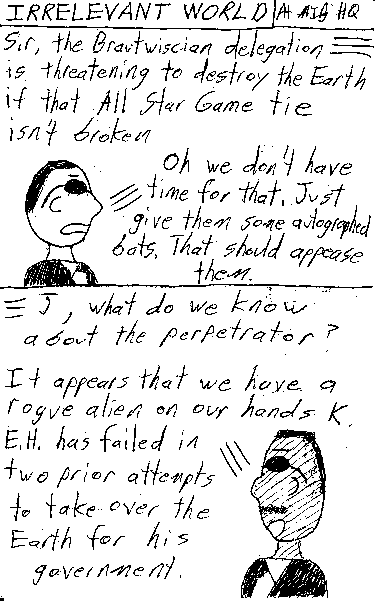 IRRELEVANT WORLD At MIB HQ
Sir, the Brautwiscian delegation
is threatening to destroy the Earth
if that All Star Game tie
isn't broken
Oh we don't have
time for that. Just
give them some autographed
bats. That should appease
them.
J, what do we know
about the perpetrator?
It appears that we have a
rogue alien on our hands K.
E.H. has failed in
two prior attempts
to take over the
Earth for his
government.